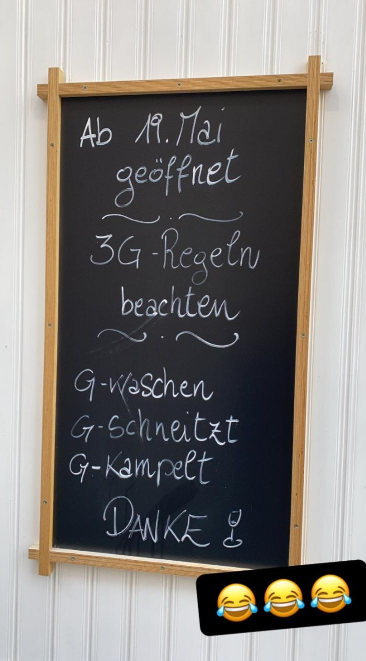 Ab 19. Mai
geöffnet
3G-Regeln
beachten
G-waschen
G-Schneitzt
G-Kampelt
DANKE